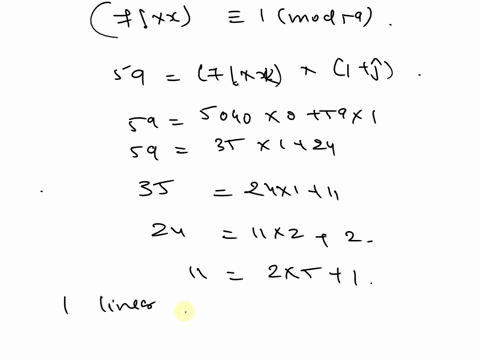 (7! × x) ≡ 1 (mod 59).
59 = (7! × x) × (1 + j).
59 = 5040 × 0 + 59 × 1
59 = 35 × 1 + 24
35 = 24 × 1 + 11
24 = 11 × 2 + 2.
11 = 2 × 5 + 1.
1 linear